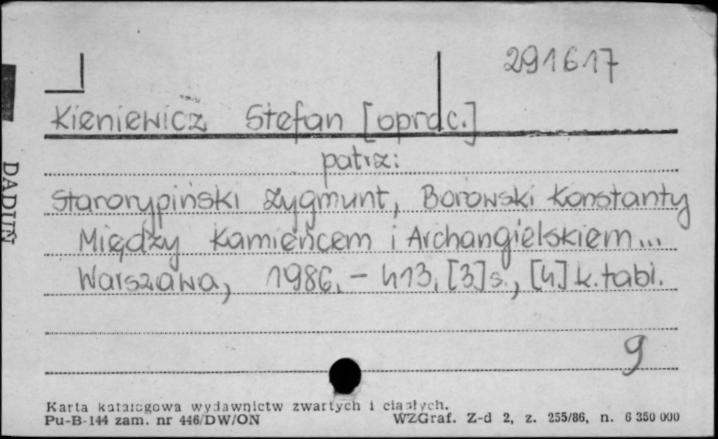 291617
Kieniewicz Stefan [oprac.]
patrz:
Starorypiński Zygmunt, Borowski Konstanty
Między Kamieńcem i Archangielskiem...
Warszawa, 1986. – 413, [3] s., [4] k. tabl.
9
DADUŃ
Karta katalogowa wydawnictw zwartych i ciągłych.
Pu-B-144 zam. nr 446/DW/ON WZGraf. Z-d 2, z. 255/86, n. 6 350 000